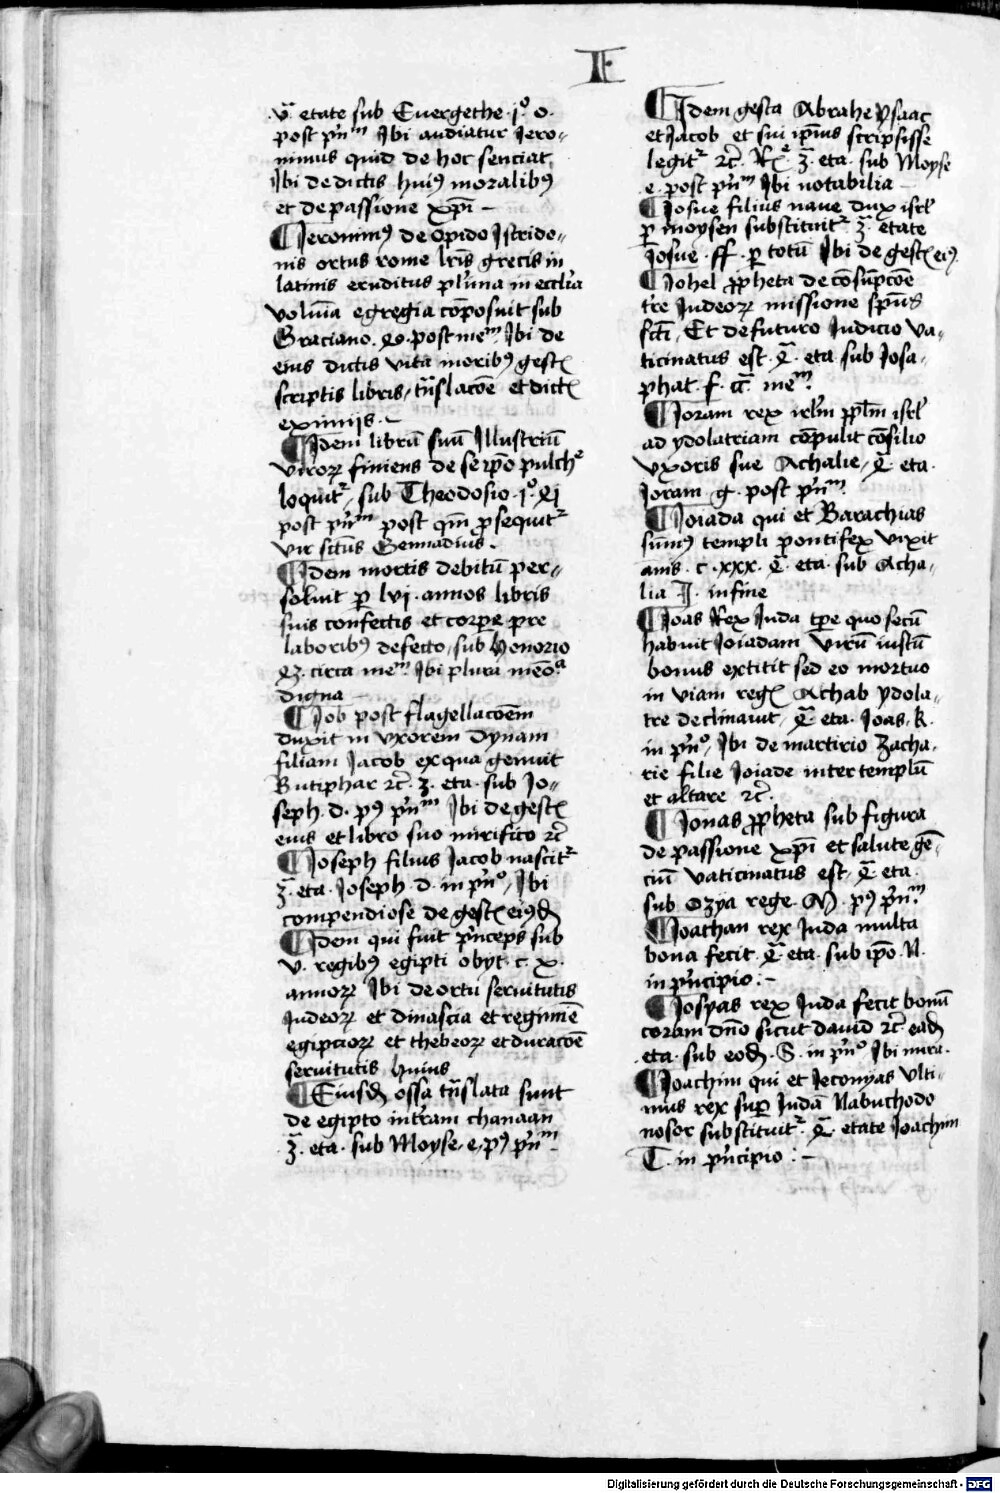 I
v̄. etate sub Euergethe .j.º o.
post pͥnᵐ Ibi audiatur Iero-
nimus quid de hoc senciat
Ibi de dictis huiꝰ moralibꝰ
et de passione xp̄i –
¶ Ieronimꝰ de opido Istrido-
nis ortus rome lr̄is grecis in
latinis eruditus plͥma in eccl̄ia
volum̄a egregia co̅posuit sub
Graciano . post meᵐ. Ibi de
eius dictis vita moribꝰ gestꝭ
scriptis libris, tn̄slaco̅e et dictꝭ
eximijs. –
¶ Idem librū suū Illustriū
virorꝝ finiens de se ip̄o pulchᵉ
loquitᵣ, sub Theodosio .jº.
post pͥnᵐ post qm̄ ꝓsequitᵣ
vir sc̄tus Gennadius.
¶ Idem mortis debitū per-
soluit ꝑ lvj. annos libris
suis confectis et corpe pre
laboribꝰ defecto, sub Honorio
circa meᵐ. Ibi plura meōᵃ
digna –
¶ Iob post flagellaco̅em
duxit in vxorem Dynam
filiam Iacob ex qua genuit
Butiphar ⁊c̄. ʒ̄. eta. sub Io-
seph. d. pꝰ pͥnᵐ Ibi de gestꝭ
eius et libro suo mirifico ⁊c̄
¶ Ioseph filius Iacob nascitᵣ
ʒ̄. eta. Ioseph. d. in pͥnº, Ibi
compendiose de gestꝭ eiꝰdē
¶ Idem qui fuit pͥnceps sub
v. regibꝰ egipti obyt. c. x.
annorꝝ Ibi de ortu seruitutis
Iudeorꝝ et dinascia et regimīe
egipciorꝝ et thebeorꝝ et duraco̅e
seruitutis huius
¶ Eiusdē ossa tn̄slata sunt
de egipto in tr̄am chanaan
ʒ̄. eta. sub Moyse, e, pꝰ pͥnᵐ.
¶ Idem gesta Abrahe ysaac
et Iacob et sui ip̄ius scripsisse
legitᵣ ⁊c̄. ʒ̄. eta. sub Moyse
e. post pͥnᵐ Ibi notabilia –
¶ Iosue filius naue dux isrl̄
ꝑ moysen substituitᵣ. ʒ̄. etate
Iosue. ff. ꝑ totū Ibi de gestꝭ eiꝰ.
¶ Iohel ꝓpheta de co̅sūpco̅e
tre Iudeorꝝ missione sp̄us
sc̄ti, Et de futuro Iudicio va-
ticinatus est. eta. sub Iosa-
phat. f. meᵐ.
¶ Ioram rex irl̄m ppl̄m isrl̄
ad ydolatriam co̅pulit co̅silio
vxoris sue Athalie, eta.
Ioram. g. post pͥnᵐ.
¶ Ioiada qui et Barachias
sūmꝰ templi pontifex vixit
anis. c. xxx. eta. sub Atha-
lia I. in fine
¶ Ioas Rex Iuda tp̄e quo secū
habuit Ioiadam virū iustū
bonus extitit sed eo mortuo
in viam regꝭ Achab ydola-
tre declinauit, eta. Ioas, k.
in pͥnº, Ibi de martirio Zacha-
rie filie Ioiade inter templū
et altare ⁊c̄.
¶ Ionas ꝓpheta sub figura
de passione xp̄i et salute ge̅-
ciū vaticinatus est, eta.
sub Ozya rege. pꝰ pͥnᵐ.
¶ Ioathan rex Iuda multa
bona fecit. eta. sub ip̄o. N.
in pͥncipio. –
¶ Iosyas rex Iuda fecit bonū
coram dn̄o sicut dauid ⁊c̄ eadē
eta. sub eodē. S. in pͥnº Ibi mira.
¶ Ioachim qui et Ieconyas vlti-
mus rex sup̄ Iudā Nabuchodo
nosor substituitᵣ. etate Ioachim
T. in pͥncipio : –
Digitalisierung gefördert durch die Deutsche Forschungsgemeinschaft - DFG